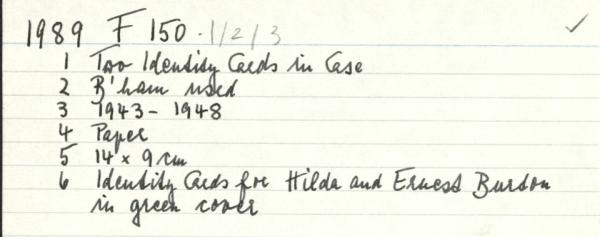 1989 F 150.1/2/3 ✓
1 Two Identity Cards in Case
2 B'ham used
3 1943 - 1948
4 Paper
5 14 x 9 cm
6 Identity Cards for Hilda and Ernest Burdon
in green cover